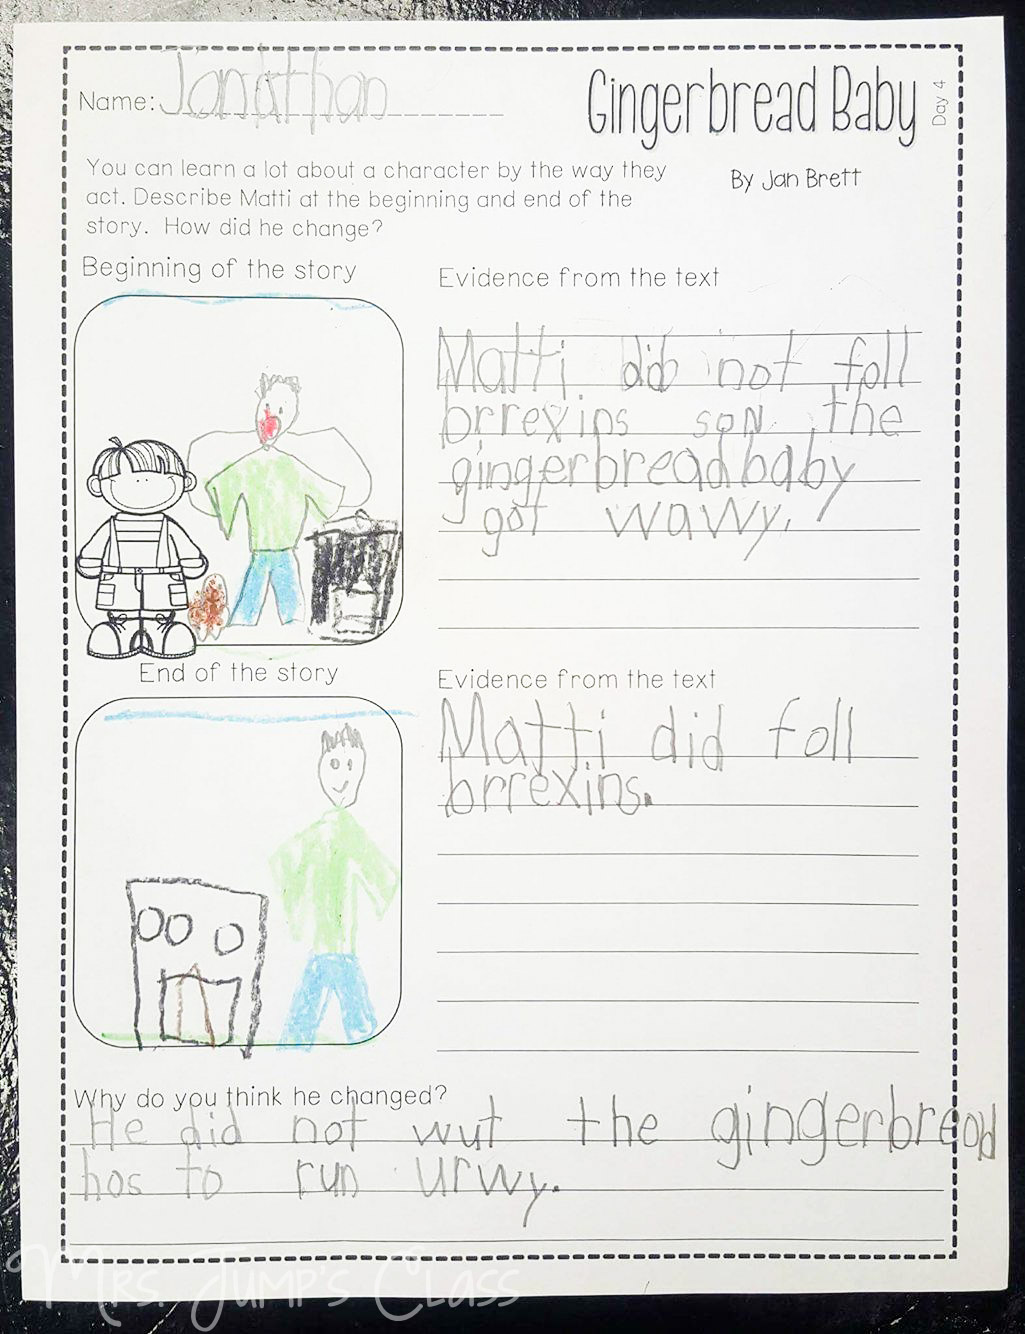 Name: Jonathan
Gingerbread Baby
Day 4
By Jan Brett
You can learn a lot about a character by the way they
act. Describe Matti at the beginning and end of the
story. How did he change?
Beginning of the story
Evidence from the text
Matti did not foll
brrexins son the
gingerbreadbaby
got wawy.
End of the story
Evidence from the text
Matti did foll
brrexins.
Why do you think he changed?
He did not wut the gingerbread
hos to run urwy.
Mrs. Jump's Class